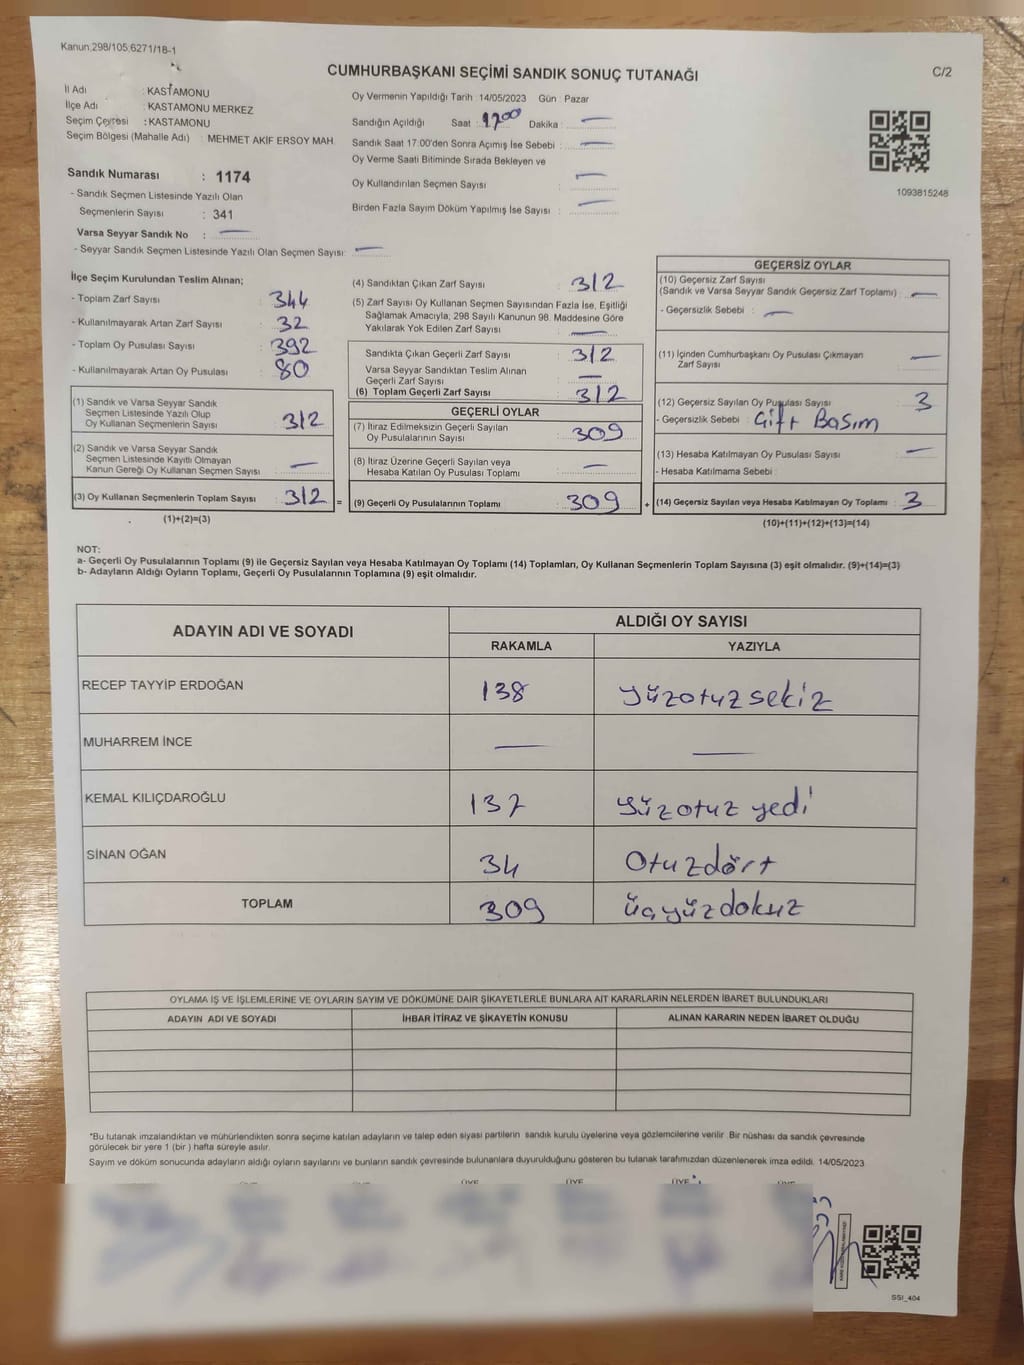 Kanun,298/105;6271/18-1
CUMHURBAŞKANI SEÇİMİ SANDIK SONUÇ TUTANAĞI
C/2
İl Adı : KASTAMONU
İlçe Adı : KASTAMONU MERKEZ
Seçim Çevresi : KASTAMONU
Seçim Bölgesi (Mahalle Adı) : MEHMET AKİF ERSOY MAH.
Oy Vermenin Yapıldığı Tarih 14/05/2023 Gün : Pazar
Sandığın Açıldığı Saat : 1700 Dakika : —
Sandık Saat 17:00'den Sonra Açımış İse Sebebi : —
Oy Verme Saati Bitiminde Sırada Bekleyen ve
Oy Kullandırılan Seçmen Sayısı : —
Birden Fazla Sayım Döküm Yapılmış İse Sayısı : —
1093815248
Sandık Numarası : 1174
- Sandık Seçmen Listesinde Yazılı Olan
Seçmenlerin Sayısı : 341
Varsa Seyyar Sandık No : —
- Seyyar Sandık Seçmen Listesinde Yazılı Olan Seçmen Sayısı: —
İlçe Seçim Kurulundan Teslim Alınan;
- Toplam Zarf Sayısı : 344
- Kullanılmayarak Artan Zarf Sayısı : 32
- Toplam Oy Pusulası Sayısı : 392
- Kullanılmayarak Artan Oy Pusulası : 80
(1) Sandık ve Varsa Seyyar Sandık
Seçmen Listesinde Yazılı Olup
Oy Kullanan Seçmenlerin Sayısı : 312
(2) Sandık ve Varsa Seyyar Sandık
Seçmen Listesinde Kayıtlı Olmayan
Kanun Gereği Oy Kullanan Seçmen Sayısı : —
(3) Oy Kullanan Seçmenlerin Toplam Sayısı : 312 =
(1)+(2)=(3)
(4) Sandıktan Çıkan Zarf Sayısı : 312
(5) Zarf Sayısı Oy Kullanan Seçmen Sayısından Fazla İse, Eşitliği
Sağlamak Amacıyla; 298 Sayılı Kanunun 98. Maddesine Göre
Yakılarak Yok Edilen Zarf Sayısı : —
Sandıkta Çıkan Geçerli Zarf Sayısı : 312
Varsa Seyyar Sandıktan Teslim Alınan
Geçerli Zarf Sayısı : —
(6) Toplam Geçerli Zarf Sayısı : 312
GEÇERLİ OYLAR
(7) İtiraz Edilmeksizin Geçerli Sayılan
Oy Pusulalarının Sayısı : 309
(8) İtiraz Üzerine Geçerli Sayılan veya
Hesaba Katılan Oy Pusulası Toplamı : —
(9) Geçerli Oy Pusulalarının Toplamı : 309 +
GEÇERSİZ OYLAR
(10) Geçersiz Zarf Sayısı
(Sandık ve Varsa Seyyar Sandık Geçersiz Zarf Toplamı) : —
- Geçersizlik Sebebi : —
(11) İçinden Cumhurbaşkanı Oy Pusulası Çıkmayan
Zarf Sayısı : —
(12) Geçersiz Sayılan Oy Pusulası Sayısı : 3
- Geçersizlik Sebebi : Çift Basım
(13) Hesaba Katılmayan Oy Pusulası Sayısı : —
- Hesaba Katılmama Sebebi :
(14) Geçersiz Sayılan veya Hesaba Katılmayan Oy Toplamı : 3
(10)+(11)+(12)+(13)=(14)
NOT:
a- Geçerli Oy Pusulalarının Toplamı (9) ile Geçersiz Sayılan veya Hesaba Katılmayan Oy Toplamı (14) Toplamları, Oy Kullanan Seçmenlerin Toplam Sayısına (3) eşit olmalıdır. (9)+(14)=(3)
b- Adayların Aldığı Oyların Toplamı, Geçerli Oy Pusulalarının Toplamına (9) eşit olmalıdır.
ADAYIN ADI VE SOYADI
ALDIĞI OY SAYISI
RAKAMLA YAZIYLA
RECEP TAYYİP ERDOĞAN 138 yüzotuzsekiz
MUHARREM İNCE — —
KEMAL KILIÇDAROĞLU 137 yüzotuz yedi
SİNAN OĞAN 34 Otuzdört
TOPLAM 309 üçyüzdokuz
OYLAMA İŞ VE İŞLEMLERİNE VE OYLARIN SAYIM VE DÖKÜMÜNE DAİR ŞİKAYETLERLE BUNLARA AİT KARARLARIN NELERDEN İBARET BULUNDUKLARI
ADAYIN ADI VE SOYADI İHBAR İTİRAZ VE ŞİKAYETİN KONUSU ALINAN KARARIN NEDEN İBARET OLDUĞU
*Bu tutanak imzalandıktan ve mühürlendikten sonra seçime katılan adayların ve talep eden siyasi partilerin sandık kurulu üyelerine veya gözlemcilerine verilir. Bir nüshası da sandık çevresinde
görülecek bir yere 1 (bir ) hafta süreyle asılır.
Sayım ve döküm sonucunda adayların aldığı oyların sayılarını ve bunların sandık çevresinde bulunanlara duyurulduğunu gösteren bu tutanak tarafımızdan düzenlenerek imza edildi. 14/05/2023
ÜYE ÜYE ÜYE
SSI_404